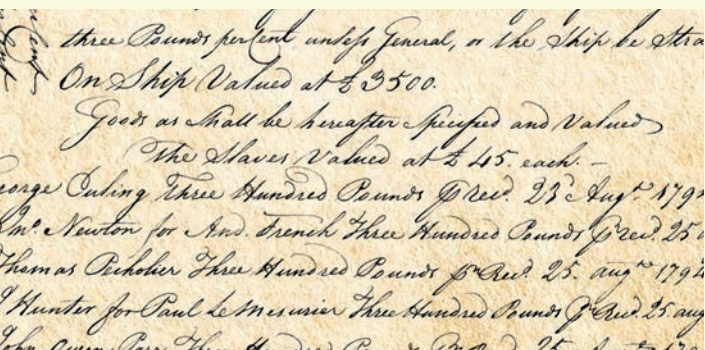 three Pounds per Cent unless General, or the Ship be Stra
On Ship Valued at £3500.
Goods as Shall be hereafter Specified and Valued
The Slaves Valued at £45. each. –
eorge Curling Three Hundred Pounds p recd. 23d Augst 179
Wm. Newton for And. French Three Hundred Pounds p recd. 25
Thomas Three Hundred Pounds pr Recd. 25. augst 1794
Hunter for Paul LeMesurier Three Hundred Pounds p Recd. 25. aug
John